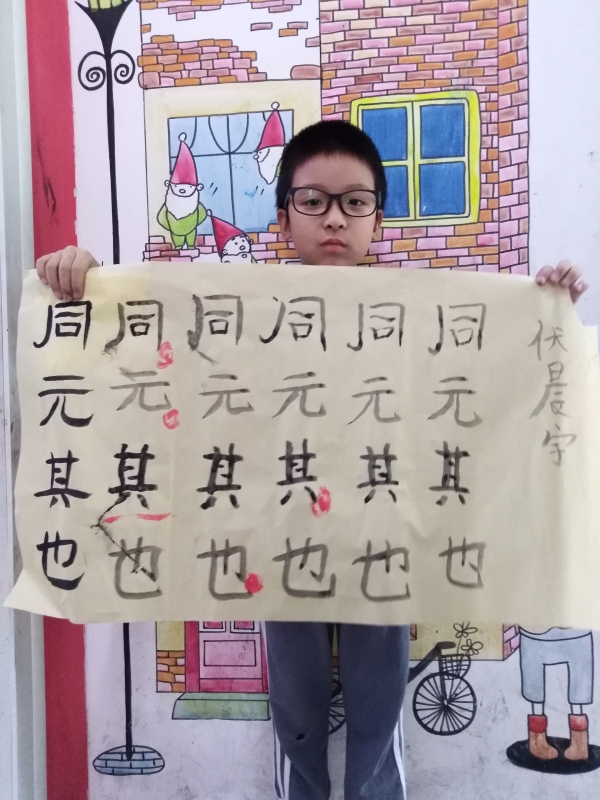 同同同同同同
元元元元元元
其其其其其其
也也也也也也
伏晨宇